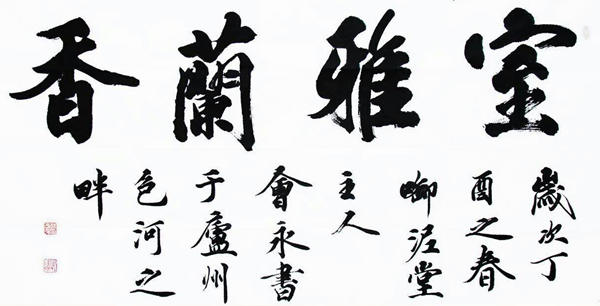 室雅蘭香
歲次丁
酉之春
啣泥堂
主人
會永書
于廬州
色河之
畔